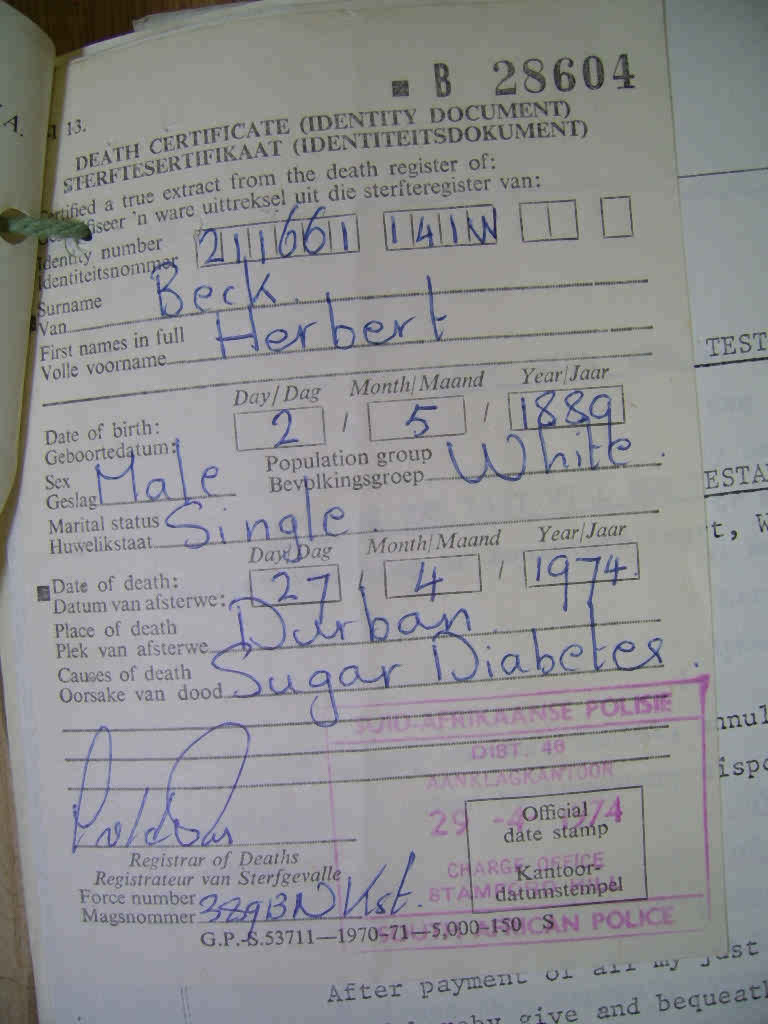 B 28604
13.
DEATH CERTIFICATE (IDENTITY DOCUMENT)
STERFTESERTIFIKAAT (IDENTITEITSDOKUMENT)
Certified a true extract from the death register of:
'n ware uittreksel uit die sterfteregister van:
Identity number 211661 141W
Identiteitsnommer
Surname Beck
Van
First names in full Herbert
Volle voorname
Day/Dag Month/Maand Year/Jaar
Date of birth: 2 / 5 / 1889
Geboortedatum:
Sex Male Population group White.
Geslag Bevolkingsgroep
Marital status Single.
Huwelikstaat
Day/Dag Month/Maand Year/Jaar
Date of death: 27 / 4 / 1974
Datum van afsterwe:
Place of death Durban
Plek van afsterwe
Causes of death Sugar Diabetes.
Oorsake van dood
SUID-AFRIKAANSE POLISIE
DIST. 46
AANKLAGKANTOOR
29 -4- 1974
Official
date stamp
CHARGE OFFICE
Kantoor-
datumstempel
SOUTH AFRICAN POLICE
Registrar of Deaths
Registrateur van Sterfgevalle
Force number
Magsnommer Kst.
G.P.-S.53711—1970-71—5,000-150 S
TEST
ESTA
t, W
nnul
ispo
After payment of all my just
give and bequeath